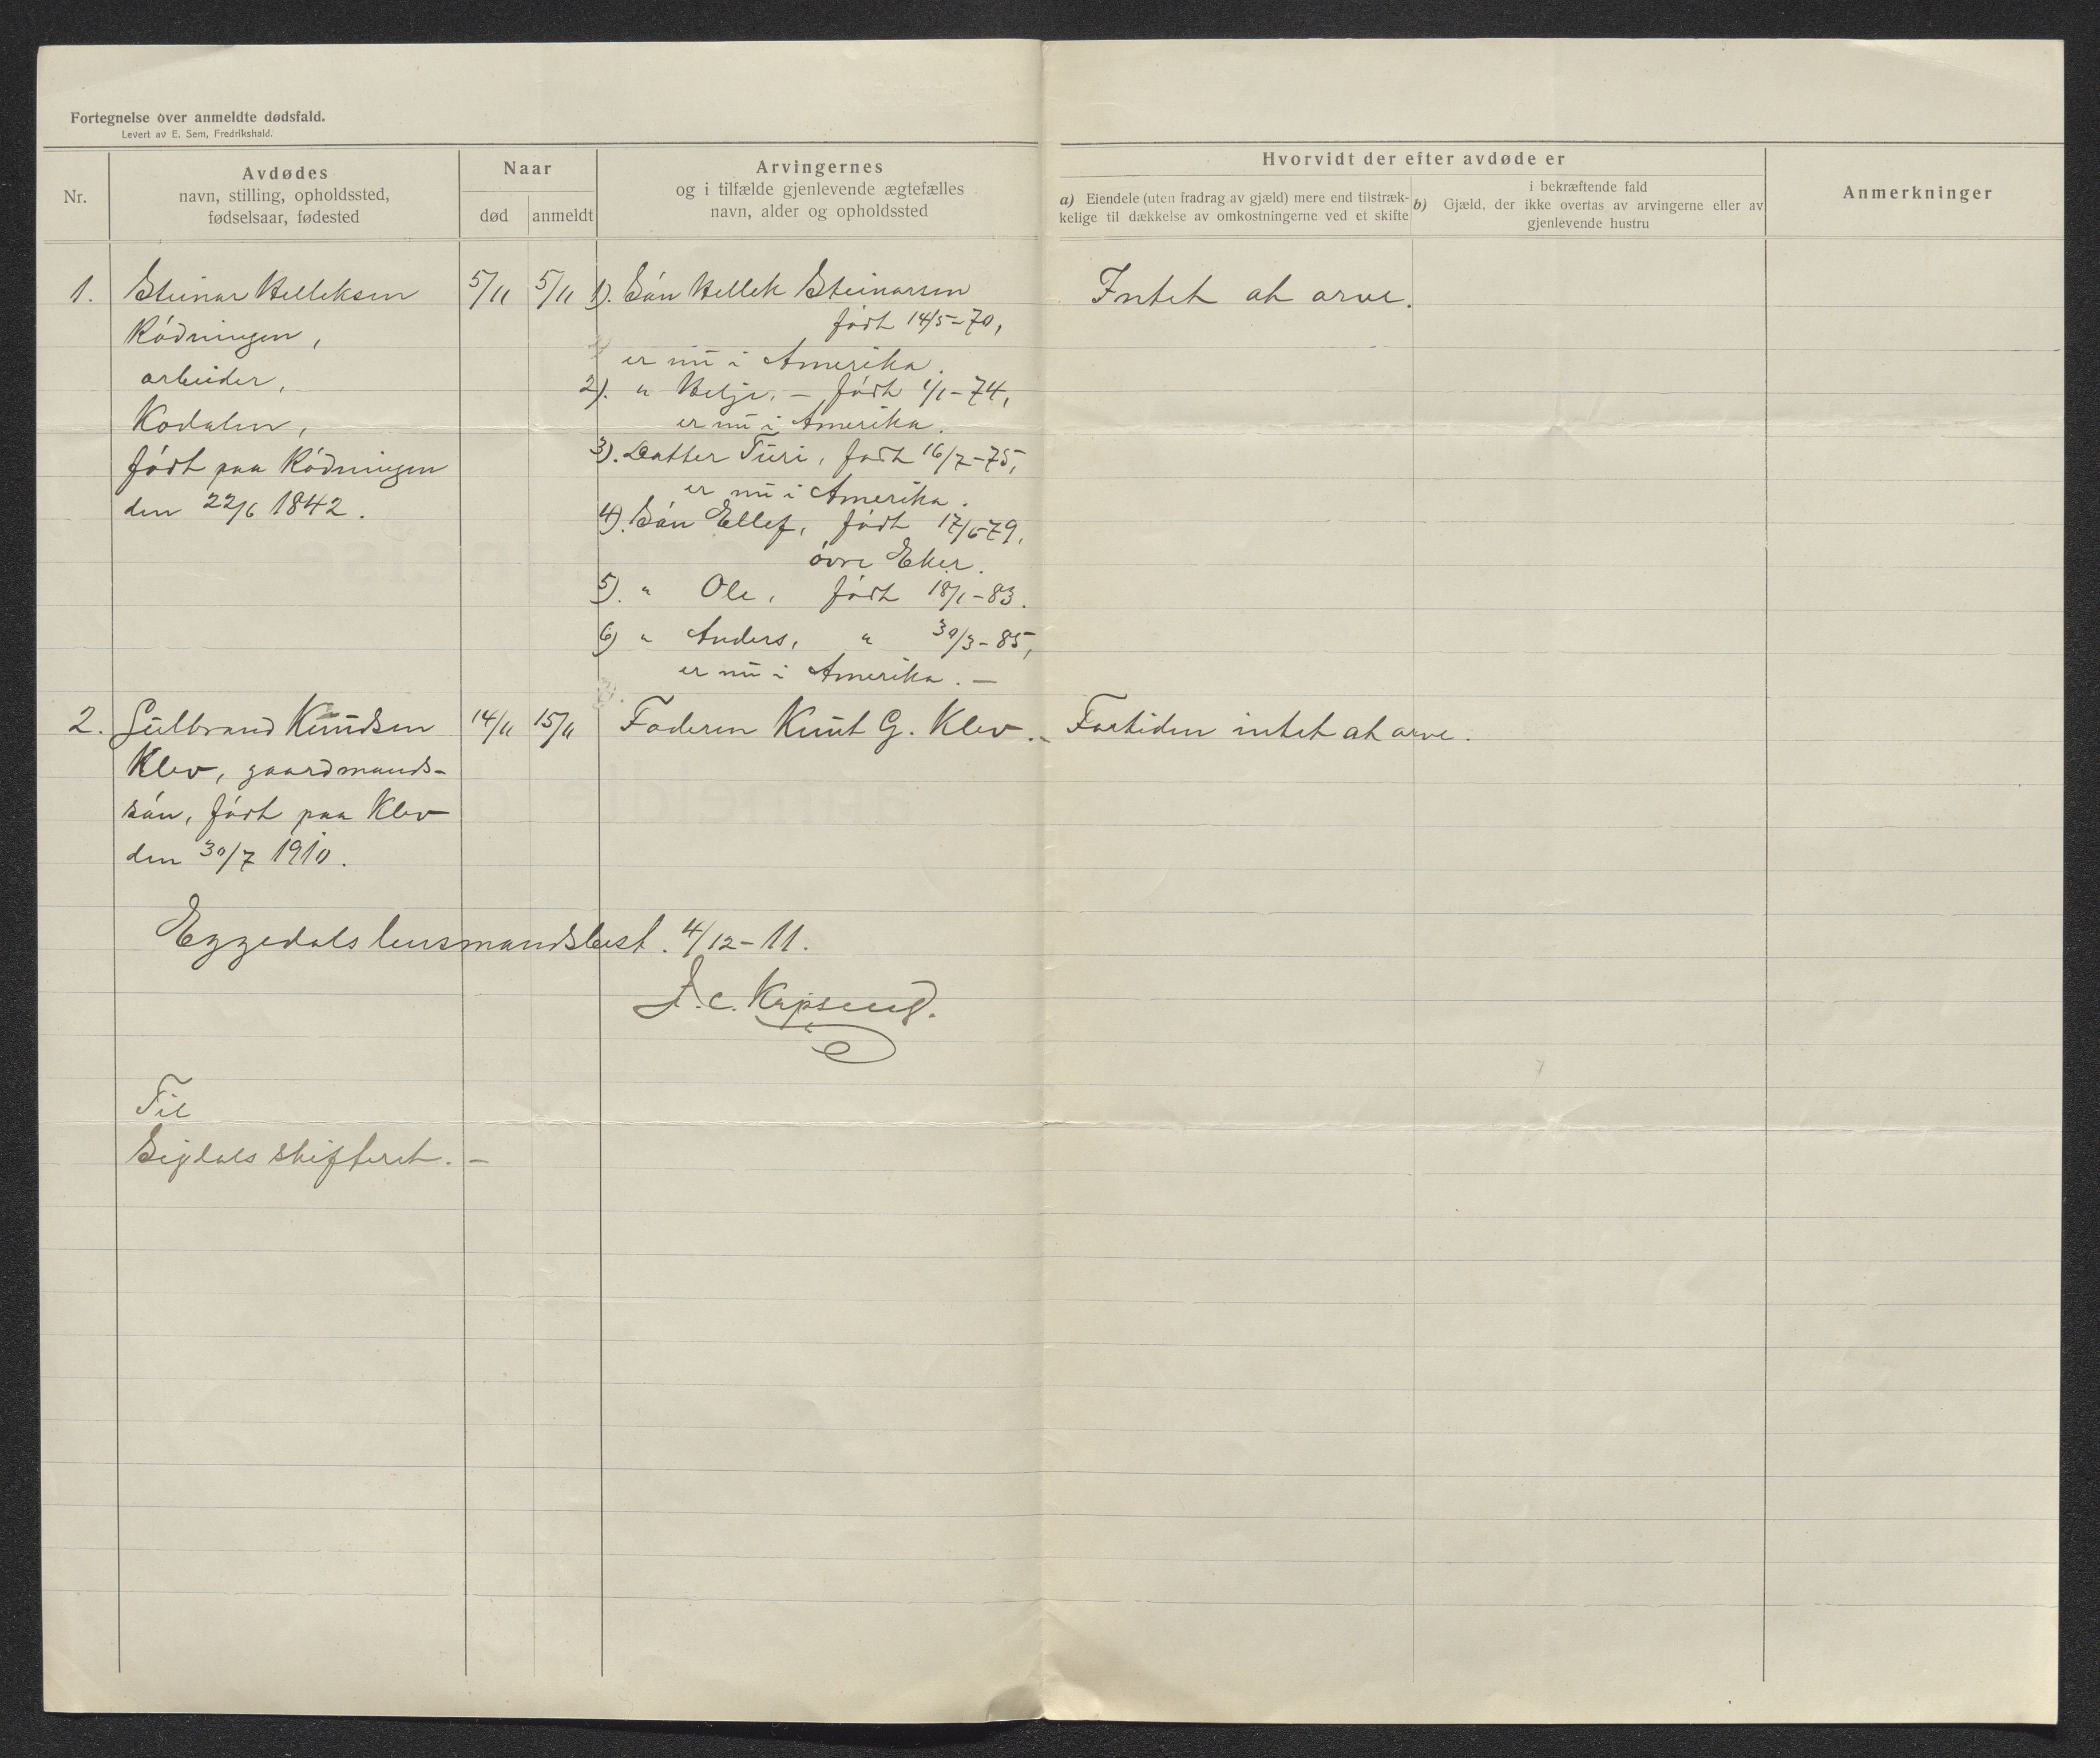 Fortegnelse over anmeldte dødsfald.
Levert av E. Sem, Fredrikshald.
Nr.
Avdødes
navn, stilling, opholdssted,
fødselsaar, fødested
Naar
død
anmeldt
Arvingernes
og i tilfælde gjenlevende ægtefælles
navn, alder og opholdssted
Hvorvidt der efter avdøde er
a) Eiendele (uten fradrag av gjæld) mere end tilstræk-
kelige til dækkelse av omkostningerne ved et skifte
i bekræftende fald
b) Gjæld, der ikke overtas av arvingerne eller av
gjenlevende hustru
Anmerkninger
1. Steinar Helleksen
Ródningen,
arbeider,
Kodalen,
fódt paa Ródningen
den 22/6 1842.
5/11
5/11
1). Són Hellek Steinarsen
fódt 14/5-70,
er nu i Amerika.
2). " Helje, - fódt 1/1-74,
er nu i Amerika.
3). Datter Turi, fódt 16/7-75,
er nu i Amerika.
4). Són Ellef, fódt 17/6-79,
óvre Eker.
5). " Ole, fódt 18/1-83.
6) " Anders, " 30/3-85,
er nu i Amerika. -
Intet at arve.
2. Gulbrand Knudsen
Klev, gaardmands-
són, fódt paa Klev
den 30/7 1910.
14/11
15/11
Faderen Knut G. Klev. -
Fortiden intet at arve.
Eggedals lensmandsbest. 4/12-11.
Til
Sigdals skifteret. -